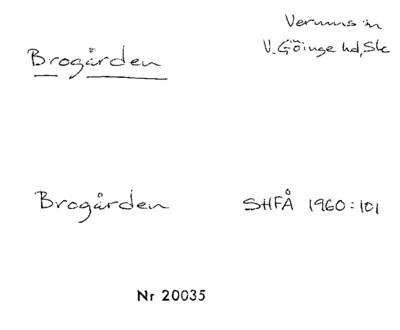 Verums sn
Brogården
V. Göinge hd, Sk
Brogården
SHFÅ 1960:101
Nr 20035